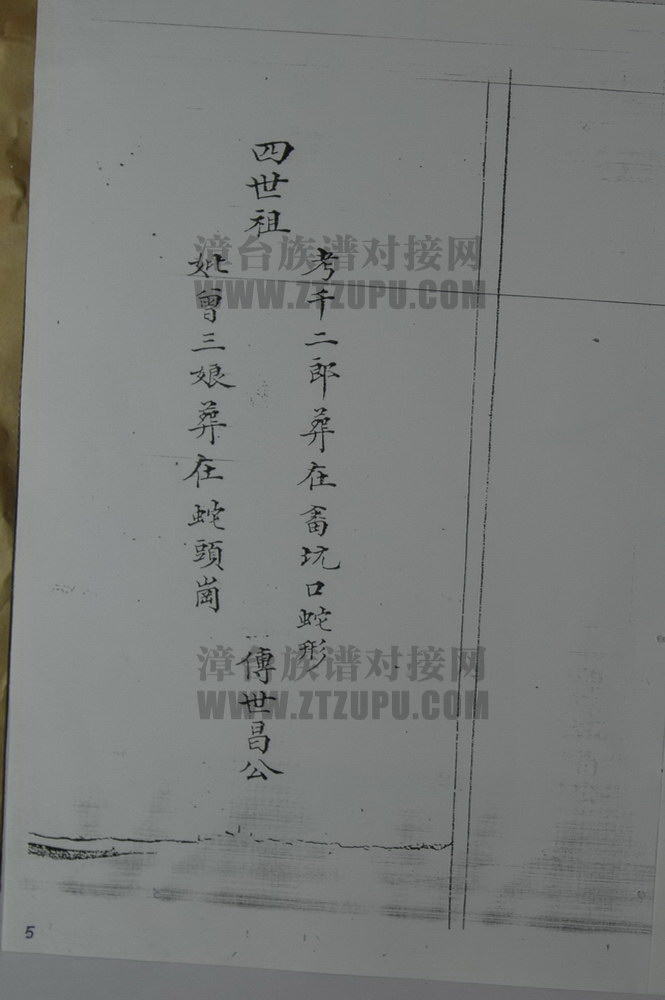 四世祖
考千二郎葬在畬坑口蛇形
妣曾三娘葬在蛇頭崗
傳世昌公
漳台族谱对接网
WWW.ZTZUPU.COM
漳台族谱对接网
WWW.ZTZUPU.COM
5